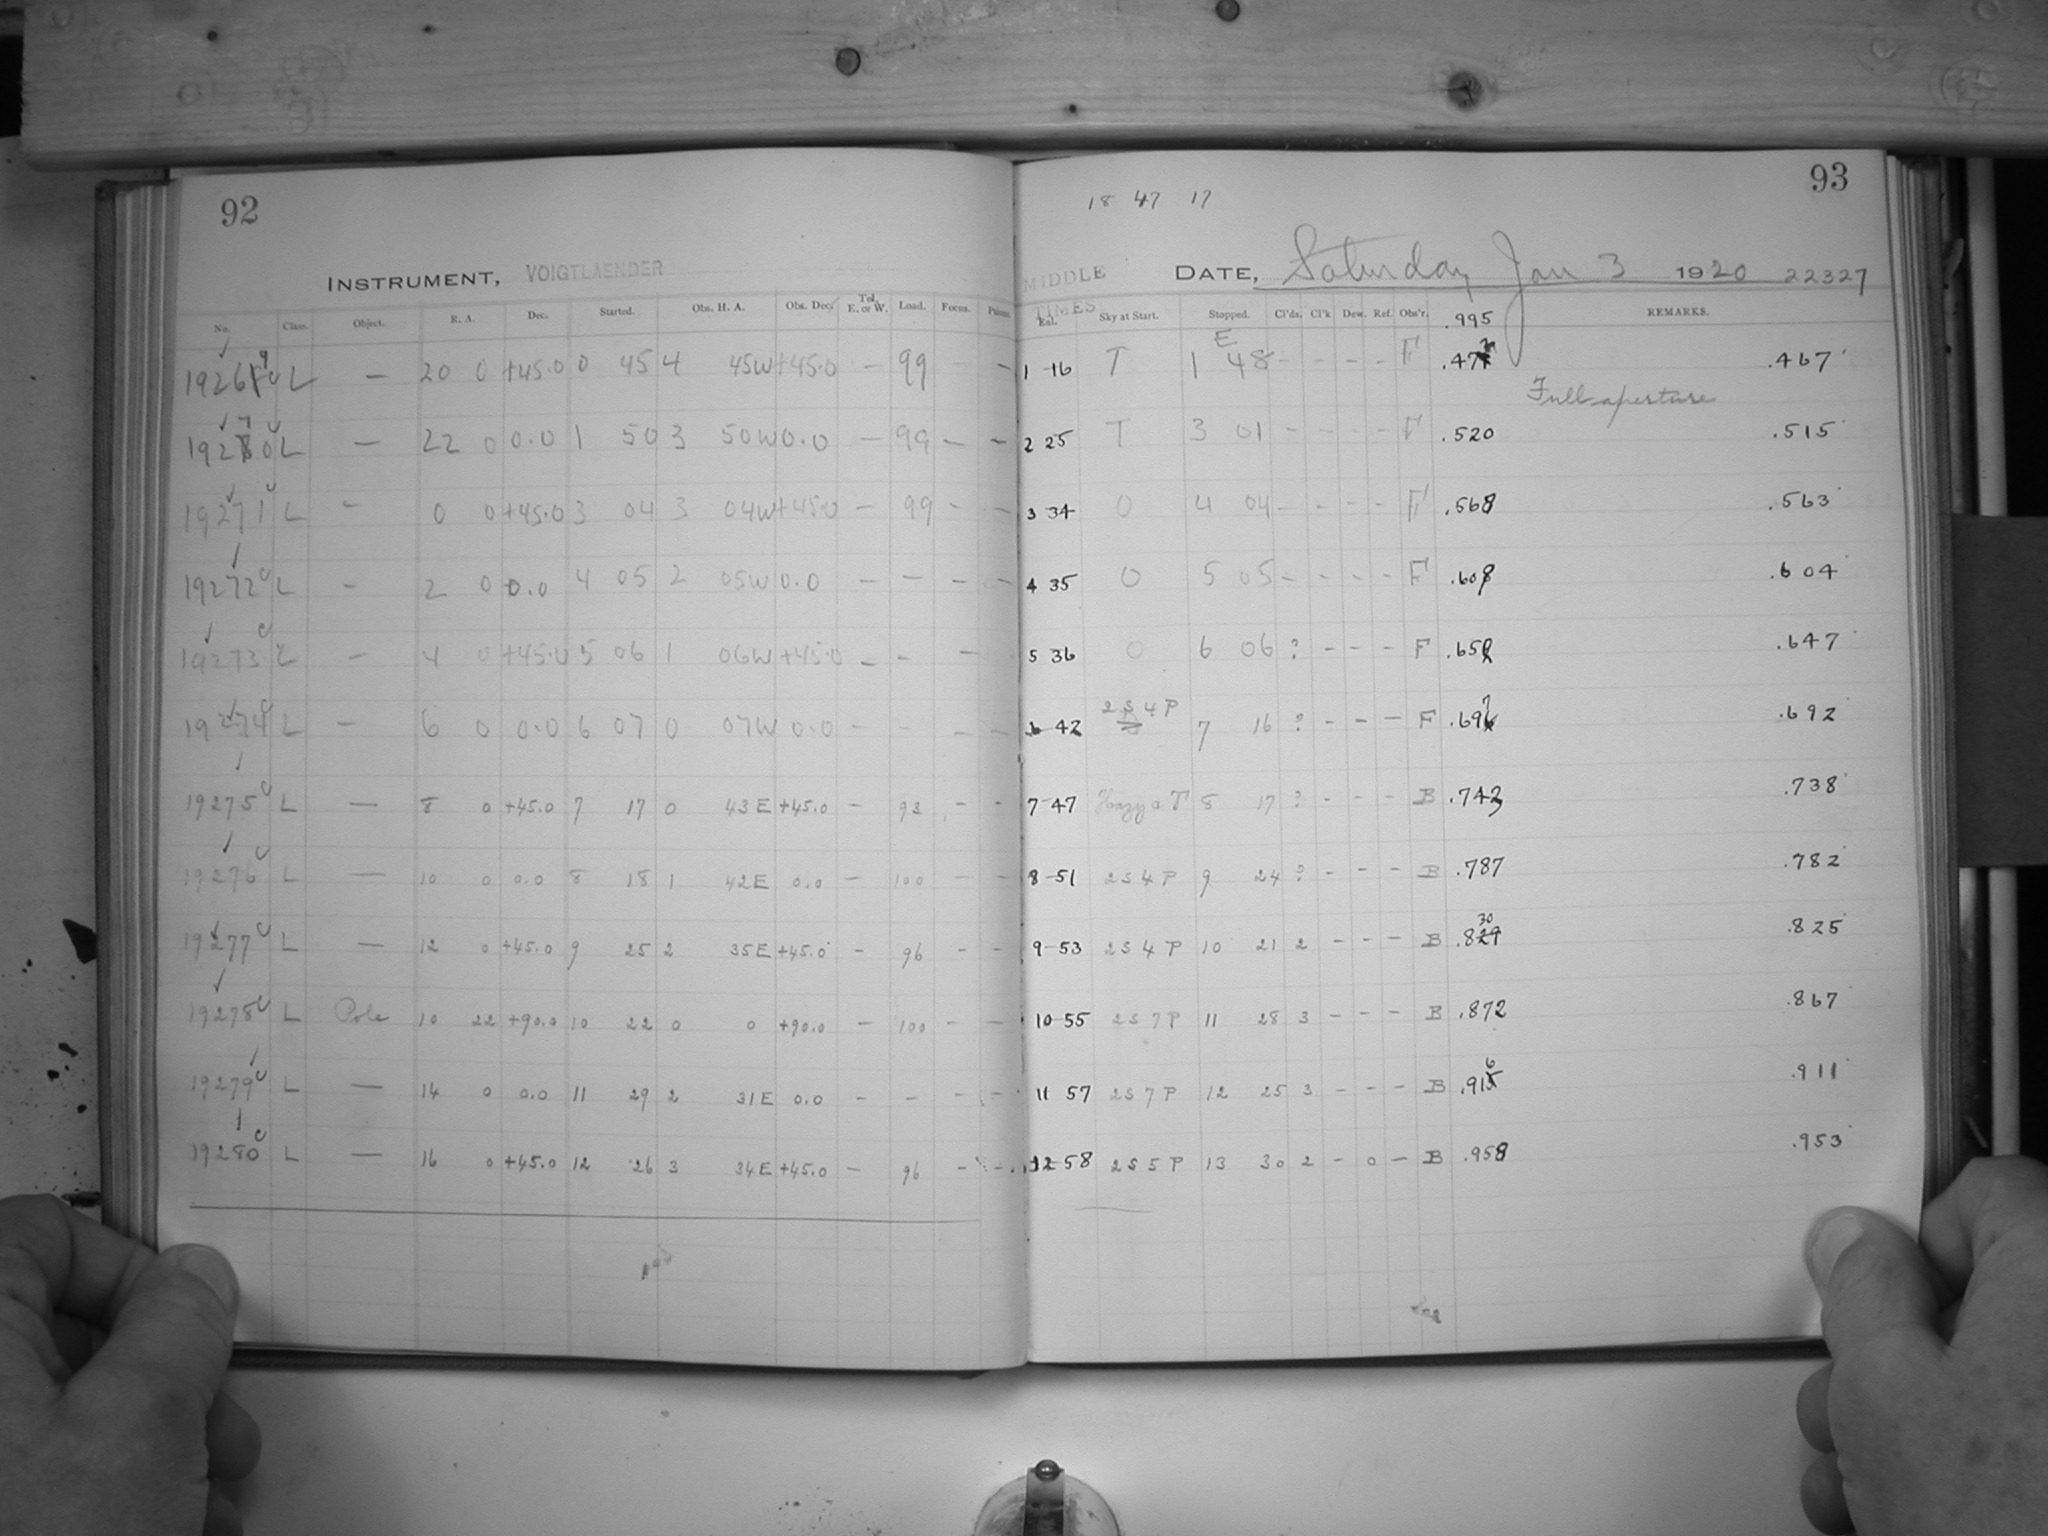 92
INSTRUMENT, VOIGTLAENDER
No. Class. Object. R. A. Dec. Started. Obs. H. A. Obs. Dec. Tel. E. or W. Load. Focus.
19269 L — 20 0 +45.0 0 45 4 45W +45.0 — 99 — —
19270 L — 22 0 0.0 1 50 3 50W 0.0 — 99 — —
19271 L — 0 0 +45.0 3 04 3 04W +45.0 — 99 — —
19272 L — 2 0 0.0 4 05 2 05W 0.0 — — — —
19273 L — 4 0 +45.0 5 06 1 06W +45.0 — — — —
19274 L — 6 0 0.0 6 07 0 07W 0.0 — — — —
19275 L — 8 0 +45.0 7 17 0 43E +45.0 — 93 — —
19276 L — 10 0 0.0 8 18 1 42E 0.0 — 100 — —
19277 L — 12 0 +45.0 9 25 2 35E +45.0 — 96 — —
19278 L Pole 10 22 +90.0 10 22 0 0 +90.0 — 100 — —
19279 L — 14 0 0.0 11 29 2 31E 0.0 — — — —
19280 L — 16 0 +45.0 12 26 3 34E +45.0 — 96 — —
93
18 47 17
MIDDLE TIMES
DATE, Saturday Jan 3 1920 22327
Sky at Start. Stopped. Cl'ds. Cl'k Dew. Ref. Obs'r. .995 REMARKS.
1 16 T 1 E 48 — — — — F .472 .467
Full aperture
2 25 T 3 01 — — — — F .520 .515
3 34 0 4 04 — — — — F .568 .563
4 35 0 5 05 — — — — F .609 .604
5 36 0 6 06 ? — — — F .652 .647
6 42 2S4P 7 16 ? — — — F .697 .692
7 47 Hazy a T 8 17 ? — — — B .743 .738
8 51 2S4P 9 24 ? — — — B .787 .782
9 53 2S4P 10 21 2 — — — B .829 30 .825
10 55 2S7P 11 28 3 — — — B .872 .867
11 57 2S7P 12 25 3 — — — B .915 6 .911
12 58 2S5P 13 30 2 — 0 — B .958 .953